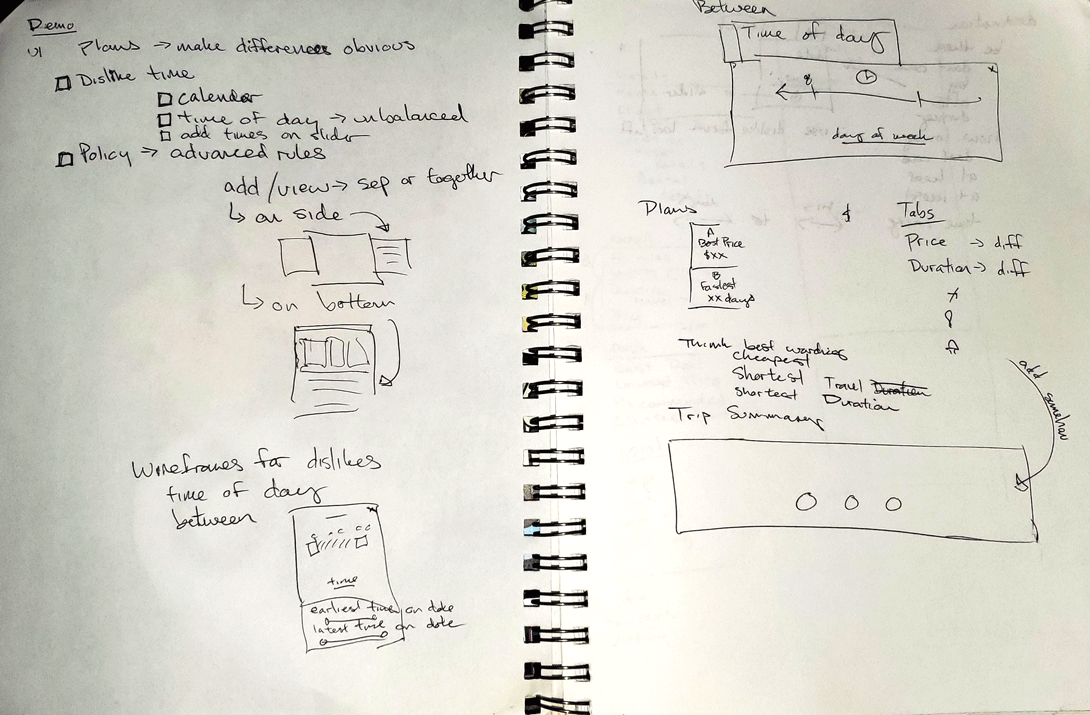 Demo
UI Plans → make differences obvious
Dislike time
calendar
time of day → unbalanced
add times on slider
Policy → advanced rules
add/view → sep or together
↳ on side
↳ on bottom
Wireframes for dislikes
time of day
between
time
earliest time on date
latest time on date
Between
Time of day
day of week
Plans
A
Best Price
$xx
B
Fastest
xx days
Tabs
Price → diff
Duration → diff
Think best wording
cheapest
Shortest Travel Duration
shortest Duration
Trip Summary
add somehow